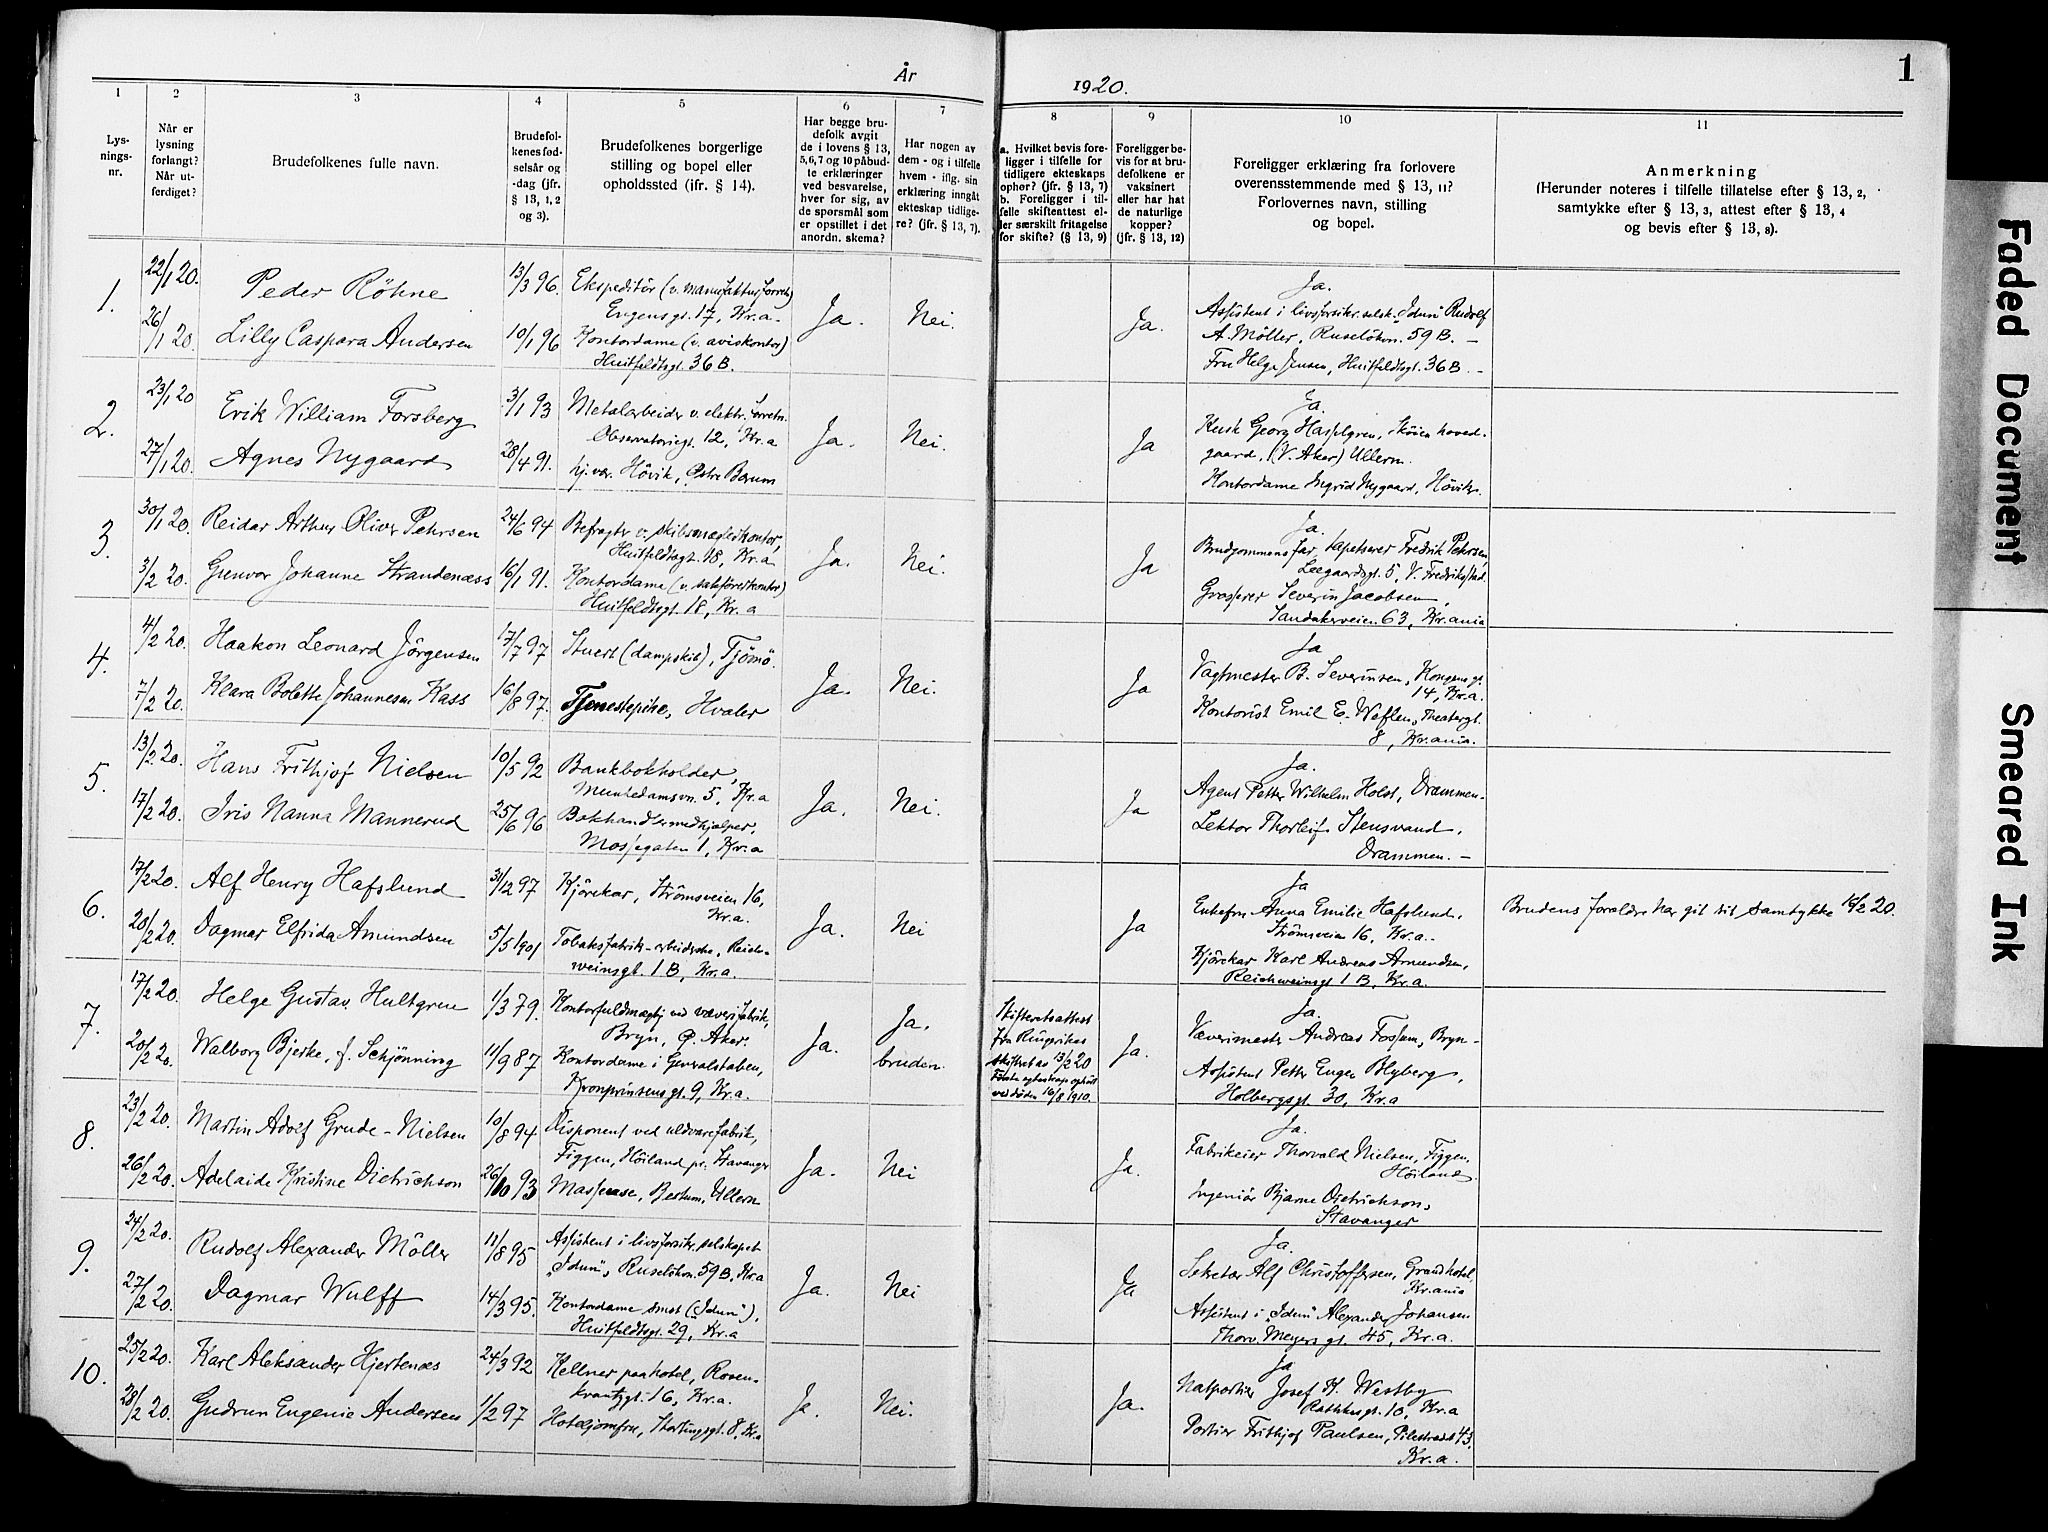 År
1920.
1
1
2
3
4
5
6
7
8
9
10
11
Lys-
nings-
nr.
Når er
lysning
forlangt?
Når ut-
ferdiget?
Brudefolkenes fulle navn.
Brudefol-
kenes fød-
selsår og
-dag (jfr.
§ 13, 1, 2
og 3).
Brudefolkenes borgerlige
stilling og bopel eller
opholdssted (ifr. § 14).
Har begge bru-
defolk avgit
de i lovens § 13,
5, 6, 7 og 10 påbud-
te erklæringer
ved besvarelse,
hver for sig, av
de spørsmål som
er opstillet i det
anordn. skema?
Har nogen av
dem - og i tilfelle
hvem - iflg. sin
erklæring inngått
ekteskap tidlige-
re? (jfr. § 13, 7).
a. Hvilket bevis fore-
ligger i tilfelle for
tidligere ekteskaps
ophør? (jfr. § 13, 7)
b. Foreligger i til-
felle skifteattest el-
ler særskilt fritagelse
for skifte? (§ 13, 9)
Foreligger be-
vis for at bru-
defolkene er
vaksinert
eller har hat
de naturlige
kopper?
(jfr. § 13, 12)
Foreligger erklæring fra forlovere
overensstemmende med § 13, 11?
Forlovernes navn, stilling
og bopel.
Anmerkning
(Herunder noteres i tilfelle tillatelse efter § 13, 2,
samtykke efter § 13, 3, attest efter § 13, 4
og bevis efter § 13, 8).
1.
22/1 20.
Peder Röhne
13/3 96.
Ekspeditör (v. manufakturforretn.)
Engensgt. 17, Kr.a.
26/1 20.
Lilly Caspara Andersen
10/1 96
Kontordame (v. aviskontor)
Huitfeldtsgt. 36 B.
Ja.
Nei.
Ja.
Ja.
Assistent i livsforsikr.selsk. „Idun" Rudolf
A. Möller, Ruselökvn. 59 B. —
Fru Helga Jensen, Huitfeldtsgt. 36 B. —
2.
23/1 20
Erik William Forsberg
3/1 93
Metalarbeider v. elektr. forretn.
Observatoriegt. 12, Kr.a
27/1 20.
Agnes Nygaard
28/4 91.
hj.vær. Hövik, Östre Bærum
Ja.
Nei.
Ja
Ja.
Kusk Georg Hasselgren, Sköien hoved-
gaard, (V. Aker) Ullern.
Kontordame Ingrid Nygaard, Hövik.
3.
30/1 20.
Reidar Arthur Oliver Pehrsen
24/6 94
Befragter v. skibsmæglerkontor,
Huitfeldtsgt. 18, Kr.a
3/2 20.
Gunvor Johanne Strandenæss
16/1 91.
Kontordame (v. sakförerkontor)
Huitfeldtsgt. 18, Kr.a
Ja.
Nei.
Ja
Ja.
Brudgommens far, tapetserer Fredrik Pehrsen,
Leegaardsgt. 5, V. Fredrikstad.
Grosserer Severin Jacobsen,
Sandakerveien 63, Kr.ania
4.
4/2 20.
Haakon Leonard Jörgensen
17/7 97
Stuert (dampskib), Tjömö.
7/2 20.
Klara Bolette Johannesen Kass
16/8 97.
Tjenestepike, Hvaler
Ja.
Nei.
Ja
Ja
Vagtmester B. Severinsen, Kongens gt.
14, Kr.a.
Kontorist Emil E. Weflen, Theatergt.
8, Kr.ania.
5.
13/2 20.
Hans Frithjof Nielsen
10/5 92
Bankbokholder,
Munkedamsvn. 5, Kr.a
17/2 20.
Iris Nanna Mannerud
25/6 96
Bokhandlermedhjælper,
Mossegaten 1, Kr.a
Ja.
Nei.
Ja
Ja.
Agent Petter Wilhelm Holst, Drammen.
Lektor Thorleif Stensvand,
Drammen. —
6.
17/2 20.
Alf Henry Hafslund
31/12 97
Kjörekar, Strömsveien 16,
Kr.a.
20/2 20.
Dagmar Elfrida Amundsen
5/5 1901
Tobaksfabrik-arbeiderske, Reich-
weinsgt. 1 B, Kr.a.
Ja.
Nei
Ja
Ja
Enkefru Anna Emilie Hafslund,
Strömsveien 16, Kr.a.
Kjörekar Karl Andreas Amundsen,
Reichweinsgt 1 B, Kr.a.
Brudens foraldre har git sit samtykke 16/2 20.
7.
17/2 20.
Helge Gustav Hultgren
1/3 79.
Kontorfuldmægtig ved væverifabrik,
Bryn, Ö. Aker.
20/2 20.
Walborg Bjerke, f. Schjönning
11/9 87
Kontordame i Generalstaben,
Kronprinsens gt. 9, Kr.a.
Ja.
Ja,
bruden.
Skifteretsattest
fra Ringerikes
skifteret av 13/2 20
Første egteskap ophört
ved döden 16/8 1910.
Ja.
Ja.
Væverimester Andreas Fossum, Bryn —
Assistent Petter Enger Blyberg,
Holbergsgt. 30, Kr.a
8.
23/2 20.
Martin Adolf Grude-Nielsen
10/8 94
Disponent ved uldvarefabrik,
Figgen, Höiland pr. Stavanger
26/2 20.
Adelaide Kristine Dietrichson
26/10 93
Masseuse, Bestum, Ullern
Ja.
Nei
Ja.
Ja.
Fabrikeier Thorvald Nielsen, Figgen,
Höiland.
Ingeniör Bjarne Dietrichson,
Stavanger
9.
24/2 20.
Rudolf Alexander Möller
11/8 95
Assistent i livsforsikr.selskapet
„Idun", Ruselökvn. 59 B, Kr.a
27/2 20.
Dagmar Wulff
14/3 95.
Kontordame smst („Idun"),
Huitfeldtsgt. 29, Kr.a
Ja.
Nei
Ja
Ja.
Sekretær Alf Christoffersen, Grand hotel,
Kr.ania
Assistent i „Idun" Alexander Johansen
Thorv. Meyers gt. 45, Kr.a.
10.
25/2 20.
Karl Aleksander Hjertenæs
24/3 92
Kellner paa hotel, Rosen-
krantzgt. 16, Kr.a.
28/2 20.
Gudrun Eugenie Andersen
1/2 97
Hoteljomfru, Stortingsgt. 8, Kr.a
Ja.
Nei.
Ja.
Ja
Natportier Josef K. Westby
Rathkesgt. 10, Kr.a
Portier Frithjof Paulsen, Pilestrædet 43,
Kr.a.
Faded Document
Smeared Ink